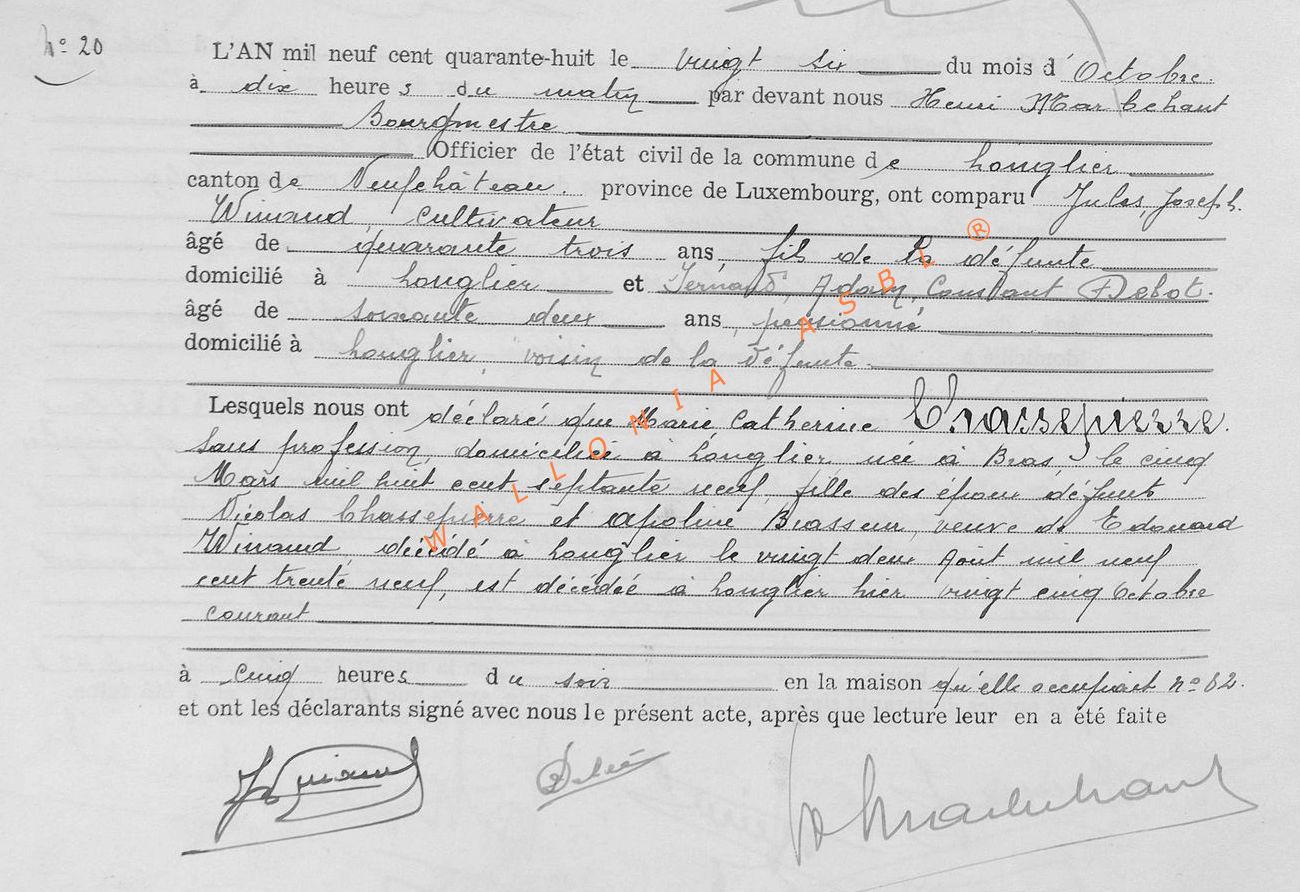 N° 20
L'AN mil neuf cent quarante-huit le vingt six du mois d'Octobre.
à dix heures du matin par devant nous Henri Marlechant
Bourgmestre
Officier de l'état civil de la commune de Longlier
canton de Neufchâteau. province de Luxembourg, ont comparu Jules, Joseph.
Winand, cultivateur
âgé de quarante trois ans, fils de la défunte
domicilié à Longlier et Fernand, Adam, Constant Debot.
âgé de soixante deux ans, pensionné
domicilié à Longlier, voisin de la défunte.
Lesquels nous ont déclaré que Marie Catherine Chassepierre.
sans profession, domiciliée à Longlier, née à Bras, le cinq
Mars mil huit cent septante neuf, fille des époux défunts
Nicolas Chassepierre et Apoline Brasseur, veuve de Edouard
Winand, décédé à Longlier le vingt deux Août mil neuf
cent trente neuf, est décédée à Longlier hier vingt cinq Octobre
courant
à cinq heures du soir en la maison qu'elle occupait n° 62.
et ont les déclarants signé avec nous le présent acte, après que lecture leur en a été faite
JWinand
WALLONIA ASBL ®